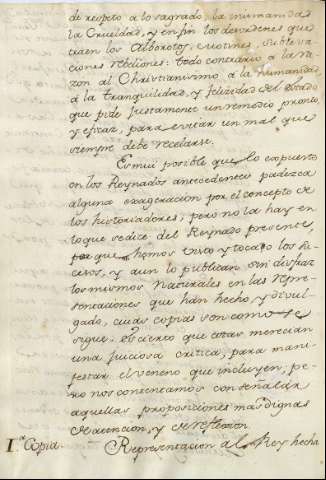 de respeto a lo sagrado, la inhumanidad
la Crueldad, y en fin los desordenes que
traen los Alborotos, motines, Subleva
ciones rebeliones: todo contrario a la ra
zon al Christianismo a la humanidad
a la tranquilidad, y felicidad del Estado
que pide Justamente un remedio pronto
y eficaz, para evitar un mal que
siempre debe recelarse.
Es mui posible que lo expuesto
en los Reynados antecedentes padezca
alguna exageracion por el concepto de
los historiadores; pero no la hay en
loque sedice del Reynado presente,
por que hemos visto y tocado los su
cesos, y aun lo publican sin disfraz
los mismos Naturales en las repre
sentaciones que han hecho, y divul
gado, cuias copias son como se
sigue. Es cierto que estas merecian
una juiciosa critica, para mani
festar el veneno que incluyen, pe
ro nos contentamos con señalar
aquellas proposiciones mas dignas
de atencion, y de reflexion.
1.ª Copia. Representacion al Rey hecha